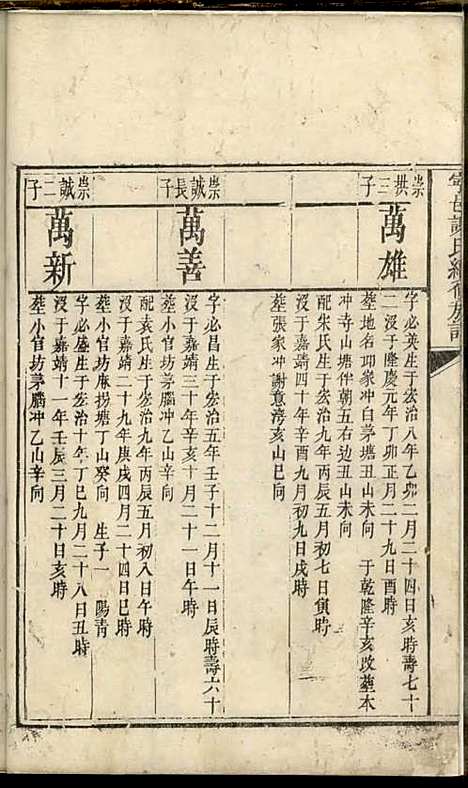 寧邑謝氏續修族譜
崇拱三子
萬雄
字必英生于宏治八年乙卯二月二十四日亥時壽七十
二沒于隆慶元年丁卯正月二十九日酉時
塟地名卯家冲白茅塘丑山未向 于乾隆辛亥改塟本
冲寺山塘伴朝五右边丑山未向
配朱氏生于宏治九年丙辰五月初七日寅時
沒于嘉靖四十年辛酉九月初九日戌時
塟張家冲謝意湾亥山巳向
崇誠長子
萬善
字必昌生于宏治五年壬子十二月十一日辰時壽六十
沒于嘉靖三十年辛亥十月二十一日午時
塟小官坊茅腦冲乙山辛向
配袁氏生于宏治九年丙辰五月初八日午時
沒于嘉靖二十九年庚戌四月二十四日巳時
塟小官坊麻拐塘丁山癸向 生子一 陽青
崇誠二子
萬新
字必盛生于宏治十年丁巳九月二十八日丑時
沒于嘉靖十一年壬辰三月二十日亥時
塟小官坊茅腦冲乙山辛向